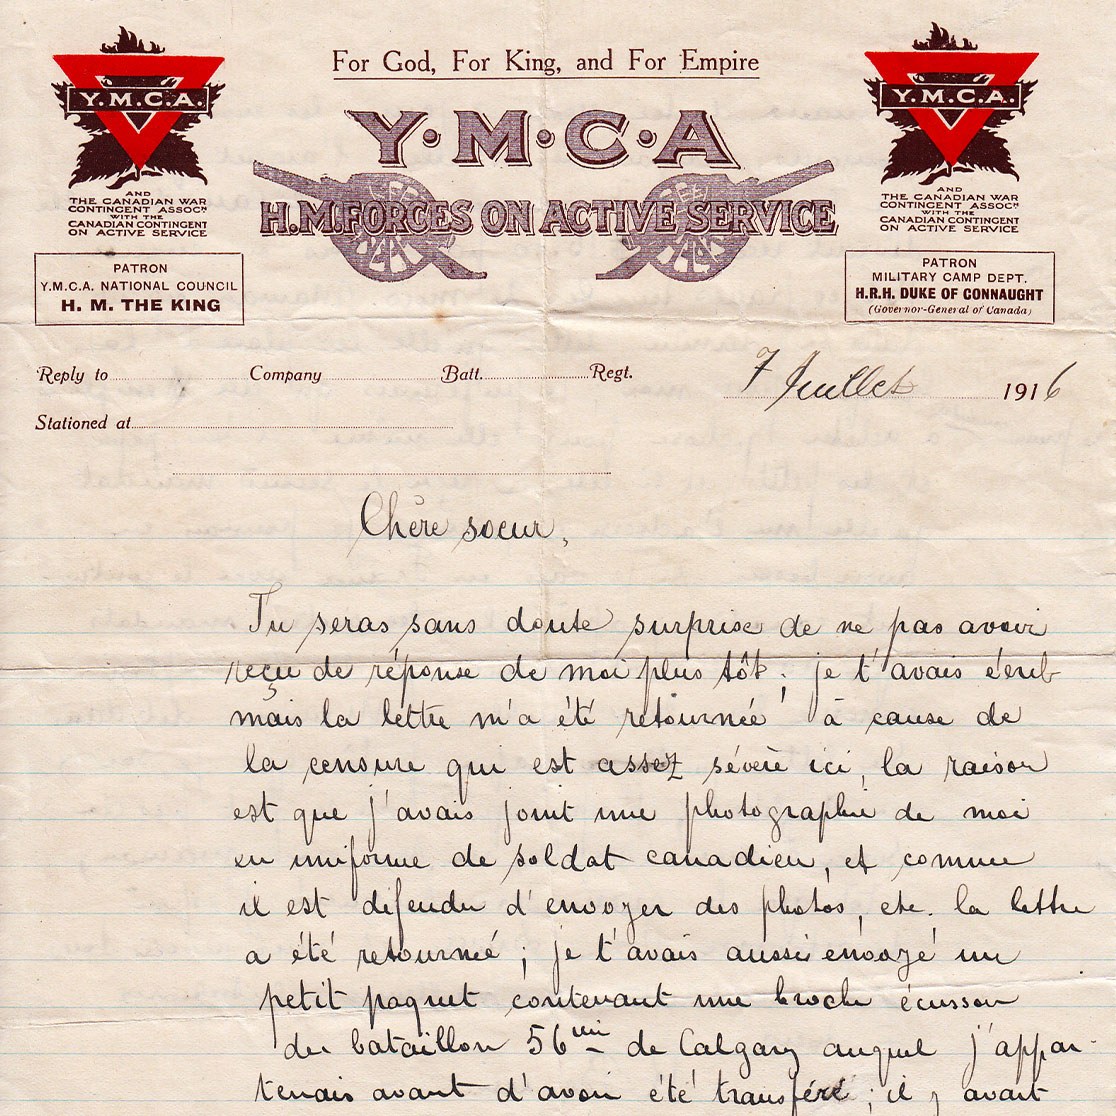 For God, For King, and For Empire
Y·M·C·A
H.M. FORCES ON ACTIVE SERVICE
Y.M.C.A.
AND
THE CANADIAN WAR
CONTINGENT ASSOCN
WITH THE
CANADIAN CONTINGENT
ON ACTIVE SERVICE
PATRON
Y.M.C.A. NATIONAL COUNCIL
H. M. THE KING
Y.M.C.A.
AND
THE CANADIAN WAR
CONTINGENT ASSOCN
WITH THE
CANADIAN CONTINGENT
ON ACTIVE SERVICE
PATRON
MILITARY CAMP DEPT.
H.R.H. DUKE OF CONNAUGHT
(Governor-General of Canada)
Reply to Company Batt. Regt. 7 Juillet 1916
Stationed at
Chère soeur,
Tu seras sans doute surprise de ne pas avoir
reçu de réponse de moi plus tôt; je t'avais écrit
mais la lettre m'a été retournée à cause de
la censure qui est assez sévère ici, la raison
est que j'avais joint une photographie de moi
en uniforme de soldat canadien, et comme
il est défendu d'envoyer des photos, etc. la lettre
a été retournée; je t'avais aussi envoyé un
petit paquet contenant une broche écusson
du bataillon 56me de Calgary auquel j'appar-
tenais avant d'avoir été transféré; il y avait